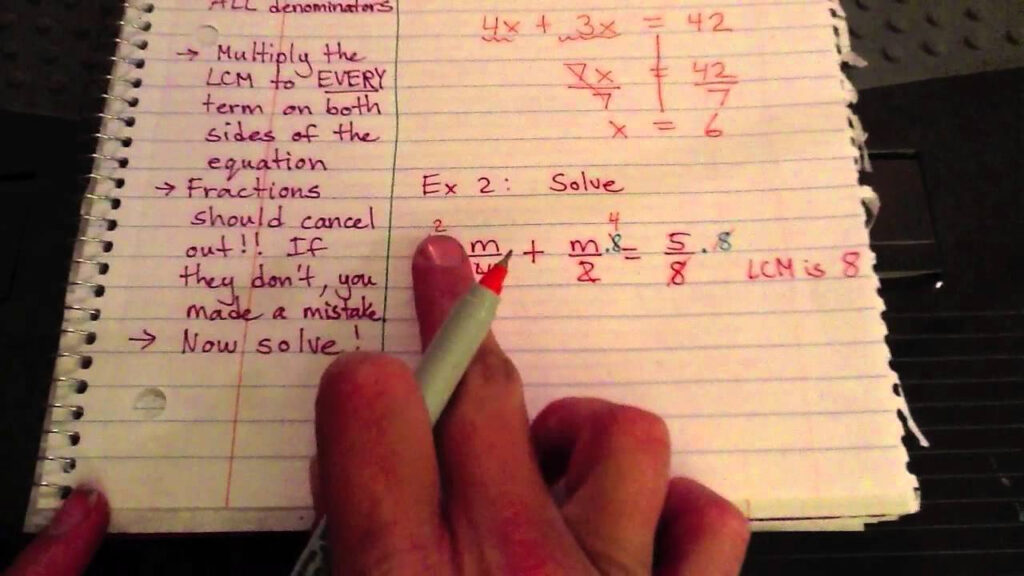 ALL denominators
→ Multiply the
LCM to EVERY
term on both
sides of the
equation
→ Fractions
should cancel
out!! If
they don't, you
made a mistake
→ Now solve!
4x + 3x = 42
7x/7 = 42/7
x = 6
Ex 2: Solve
2 4
m/4 + m/2 .8 = 5/8 . 8
LCM is 8